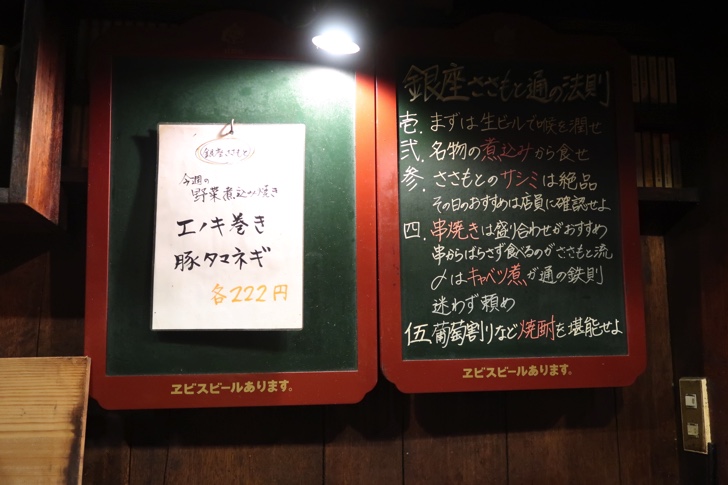 銀座ささもと
今週の
野菜煮込み焼き
エノキ巻き
豚タマネギ
各222円
ヱビスビールあります。
銀座ささもと通の法則
壱.まずは生ビールで喉を潤せ
弐.名物の煮込みから食せ
参.ささもとのサシミは絶品
その日のおすすめは店員に確認せよ
四.串焼きは盛り合わせがおすすめ
串からばらさず食べるのがささもと流
〆はキャベツ煮が通の鉄則
迷わず頼め
伍.葡萄割りなど焼酎を堪能せよ
ヱビスビールあります。